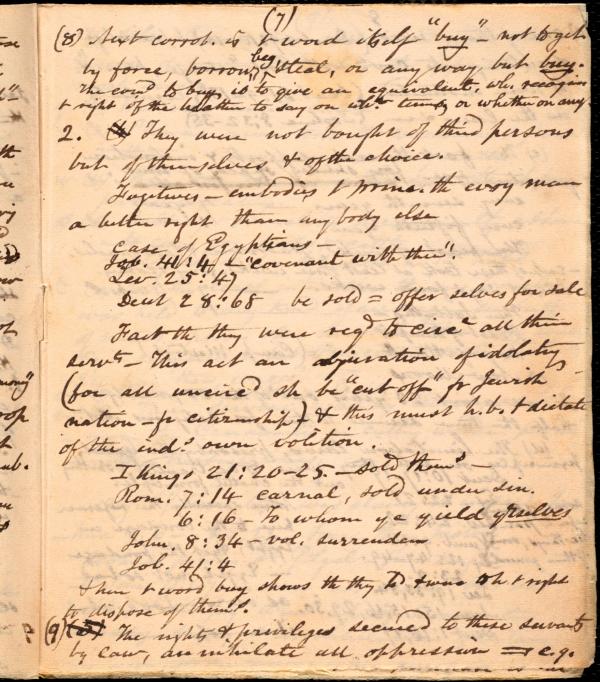 (7)
(8) Next corrob. is t word itself "buy" - not to get
by force, borrow, beg, steal, or any way but buy.
The com'd to buy, is to give an equivalent, wh. recognizes
t right of the heathen to say on wh. terms, or whether on any.
2. They were not bought of third persons
but of themselves & of the choice.
Fugitives - embodies t princ. th every man
a better right than anybody else
Case of Egyptians -
Job. 41:4 - "covenant with thee".
Lev. 25:47
Deut 28:68 be sold = offer selves for sale
Fact th they were reqd to circ all their
servts - This act an abjuration of idolatry
(for all uncircd sh be "cut off" fr Jewish
nation - fr citizenship) & this must h.b. t dictate
of the inds own volition.
I Kings 21:20-25. - sold thems -
Rom. 7:14 carnal, sold under sin.
6:16 To whom ye yield yrselves
John. 8:34 - vol. surrender
Job. 41:4
then t word buy shows th thy hd t right
to dispose of thems.
(9) The rights & privileges secured to these servants
by law, annihilate all oppression = e.g.